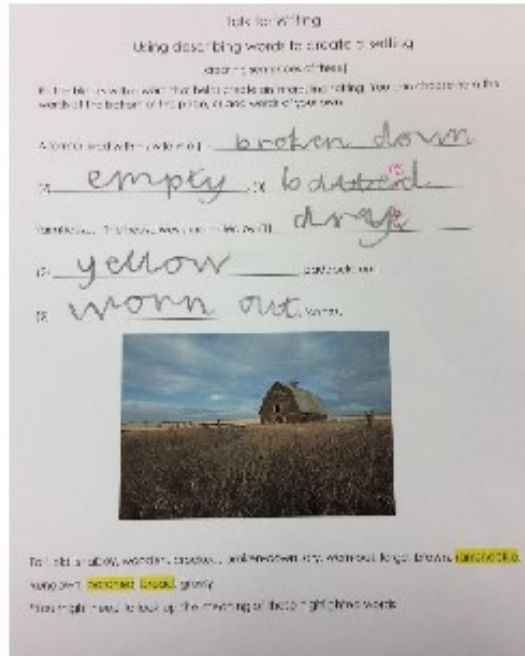 Talk for Writing
Using describing words to create a setting
(creating sentences of three)
Fill the blanks with a word that helps create an interesting setting. You can choose from the
words at the bottom of the page, or add words of your own.
A farmer lived with his wife in a (1) broken down
(2) empty , (3)
farmhouse. The house was surrounded by (1)
(2) yellow paddocks and
(3) worn out
Tall, old, shabby, wooden, crooked, broken-down, dry, worn-out, large, brown, ramshackle,
rundown, parched, broad, grassy
*You might need to look up the meaning of these highlighted words